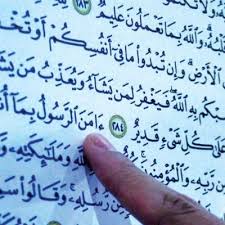 ٢٨٣
وَٱللَّهُ بِمَا تَعْمَلُونَ عَلِيمٌ
ٱلْأَرْضِ وَإِن تُبْدُوا۟ مَا فِىٓ أَنفُسِكُمْ أَوْ تُخْفُ
سِبْكُم بِهِ ٱللَّهُ فَيَغْفِرُ لِمَن يَشَآءُ وَيُعَذِّبُ مَن يَشَ
عَلَىٰ كُلِّ شَىْءٍ قَدِيرٌ ٢٨٤ ءَامَنَ ٱلرَّسُولُ بِمَآ أُن
مِن رَّبِّهِۦ وَٱلْمُؤْمِنُونَ وَمَلَٰٓئِكَتِهِۦ وَ
مِّن رُّسُلِهِۦ وَقَالُوا۟ سَ